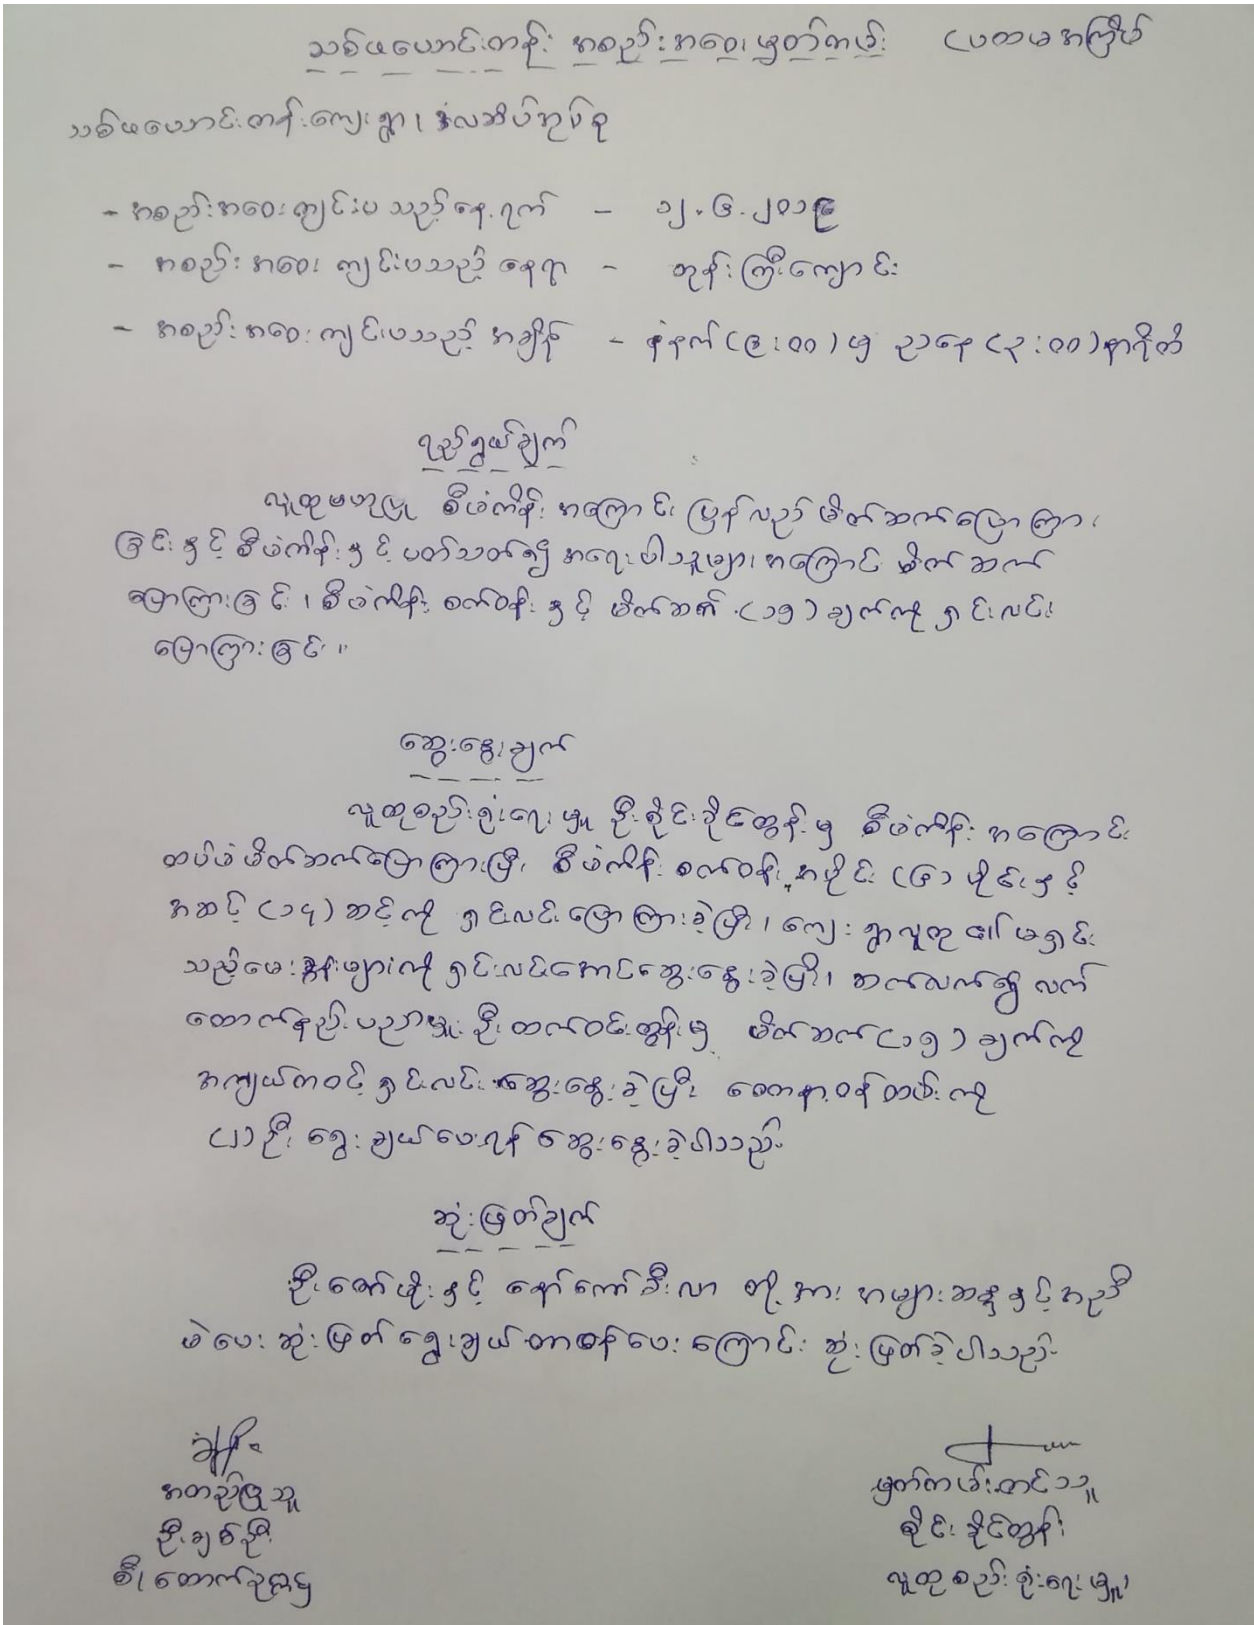 သစ်ဖယောင်းတန်း အစည်းအဝေး မှတ်တမ်း (ပထမအကြိမ်
သစ်ဖယောင်းတန်းကျေးရွာ၊ အုပ်စု
- အစည်းအဝေးကျင်းပသည့်နေ့ရက် - ၁၂.၆.၂၀၁၉
- အစည်းအဝေး ကျင်းပသည့် နေရာ - ဘုန်းကြီးကျောင်း
- အစည်းအဝေးကျင်းပသည့် အချိန် - နံနက် (၉:၀၀) မှ ညနေ (၃:၀၀) နာရီထိ
ရည်ရွယ်ချက်
လူထုဗဟိုပြု စီမံကိန်း အကြောင်း ပြန်လည် မိတ်ဆက်ပြောကြား
ခြင်းနှင့် စီမံကိန်းနှင့် ပတ်သတ်၍ အရေးပါသူများအကြောင်း မိတ်ဆက်
ပြောကြားခြင်း၊ စီမံကိန်း စက်ဝန်းနှင့် မိတ်ဆက် (၁၅) ချက်ကို ရှင်းလင်း
ပြောကြားခြင်း။
ဆွေးနွေးချက်
လူထုစည်းရုံးရေးမှူး ဦးစိုင်းခိုင်ထွန်းမှ စီမံကိန်း အကြောင်း
ထပ်မံမိတ်ဆက်ပြောကြားပြီး စီမံကိန်း စက်ဝန်း အပိုင်း (၆) ပိုင်းနှင့်
အဆင့် (၁၄) ဆင့်ကို ရှင်းလင်းပြောကြားခဲ့ပြီး၊ ကျေးရွာလူထု၏ မရှင်း
သည့်မေးခွန်းများကို ရှင်းလင်းအောင်ဆွေးနွေးခဲ့ပြီး၊ ဆက်လက်၍ လက်
ထောက်နည်းပညာမှူး ဦးထက်ဝင်းထွန်းမှ မိတ်ဆက် (၁၅) ချက်ကို
အကျယ်တဝင့် ရှင်းလင်း ဆွေးနွေးခဲ့ပြီး စေတနာ့ဝန်ထမ်းကို
(၂) ဦး ရွေးချယ်ပေးရန် ဆွေးနွေးခဲ့ပါသည်။
ဆုံးဖြတ်ချက်
ဦးဇော်မိုးနှင့် နော်ကော်ဒီးလာ တို့အား အများဆန္ဒနှင့်အညီ
မဲပေး ဆုံးဖြတ်ရွေးချယ်တာဝန်ပေးကြောင်း ဆုံးဖြတ်ခဲ့ပါသည်။
အတည်ပြုသူ
ဦးချစ်ဦး
စီ၊ထောက်ဥက္ကဋ္ဌ
မှတ်တမ်းတင်သူ
စိုင်းခိုင်ထွန်း
လူထုစည်းရုံးရေးမှူး